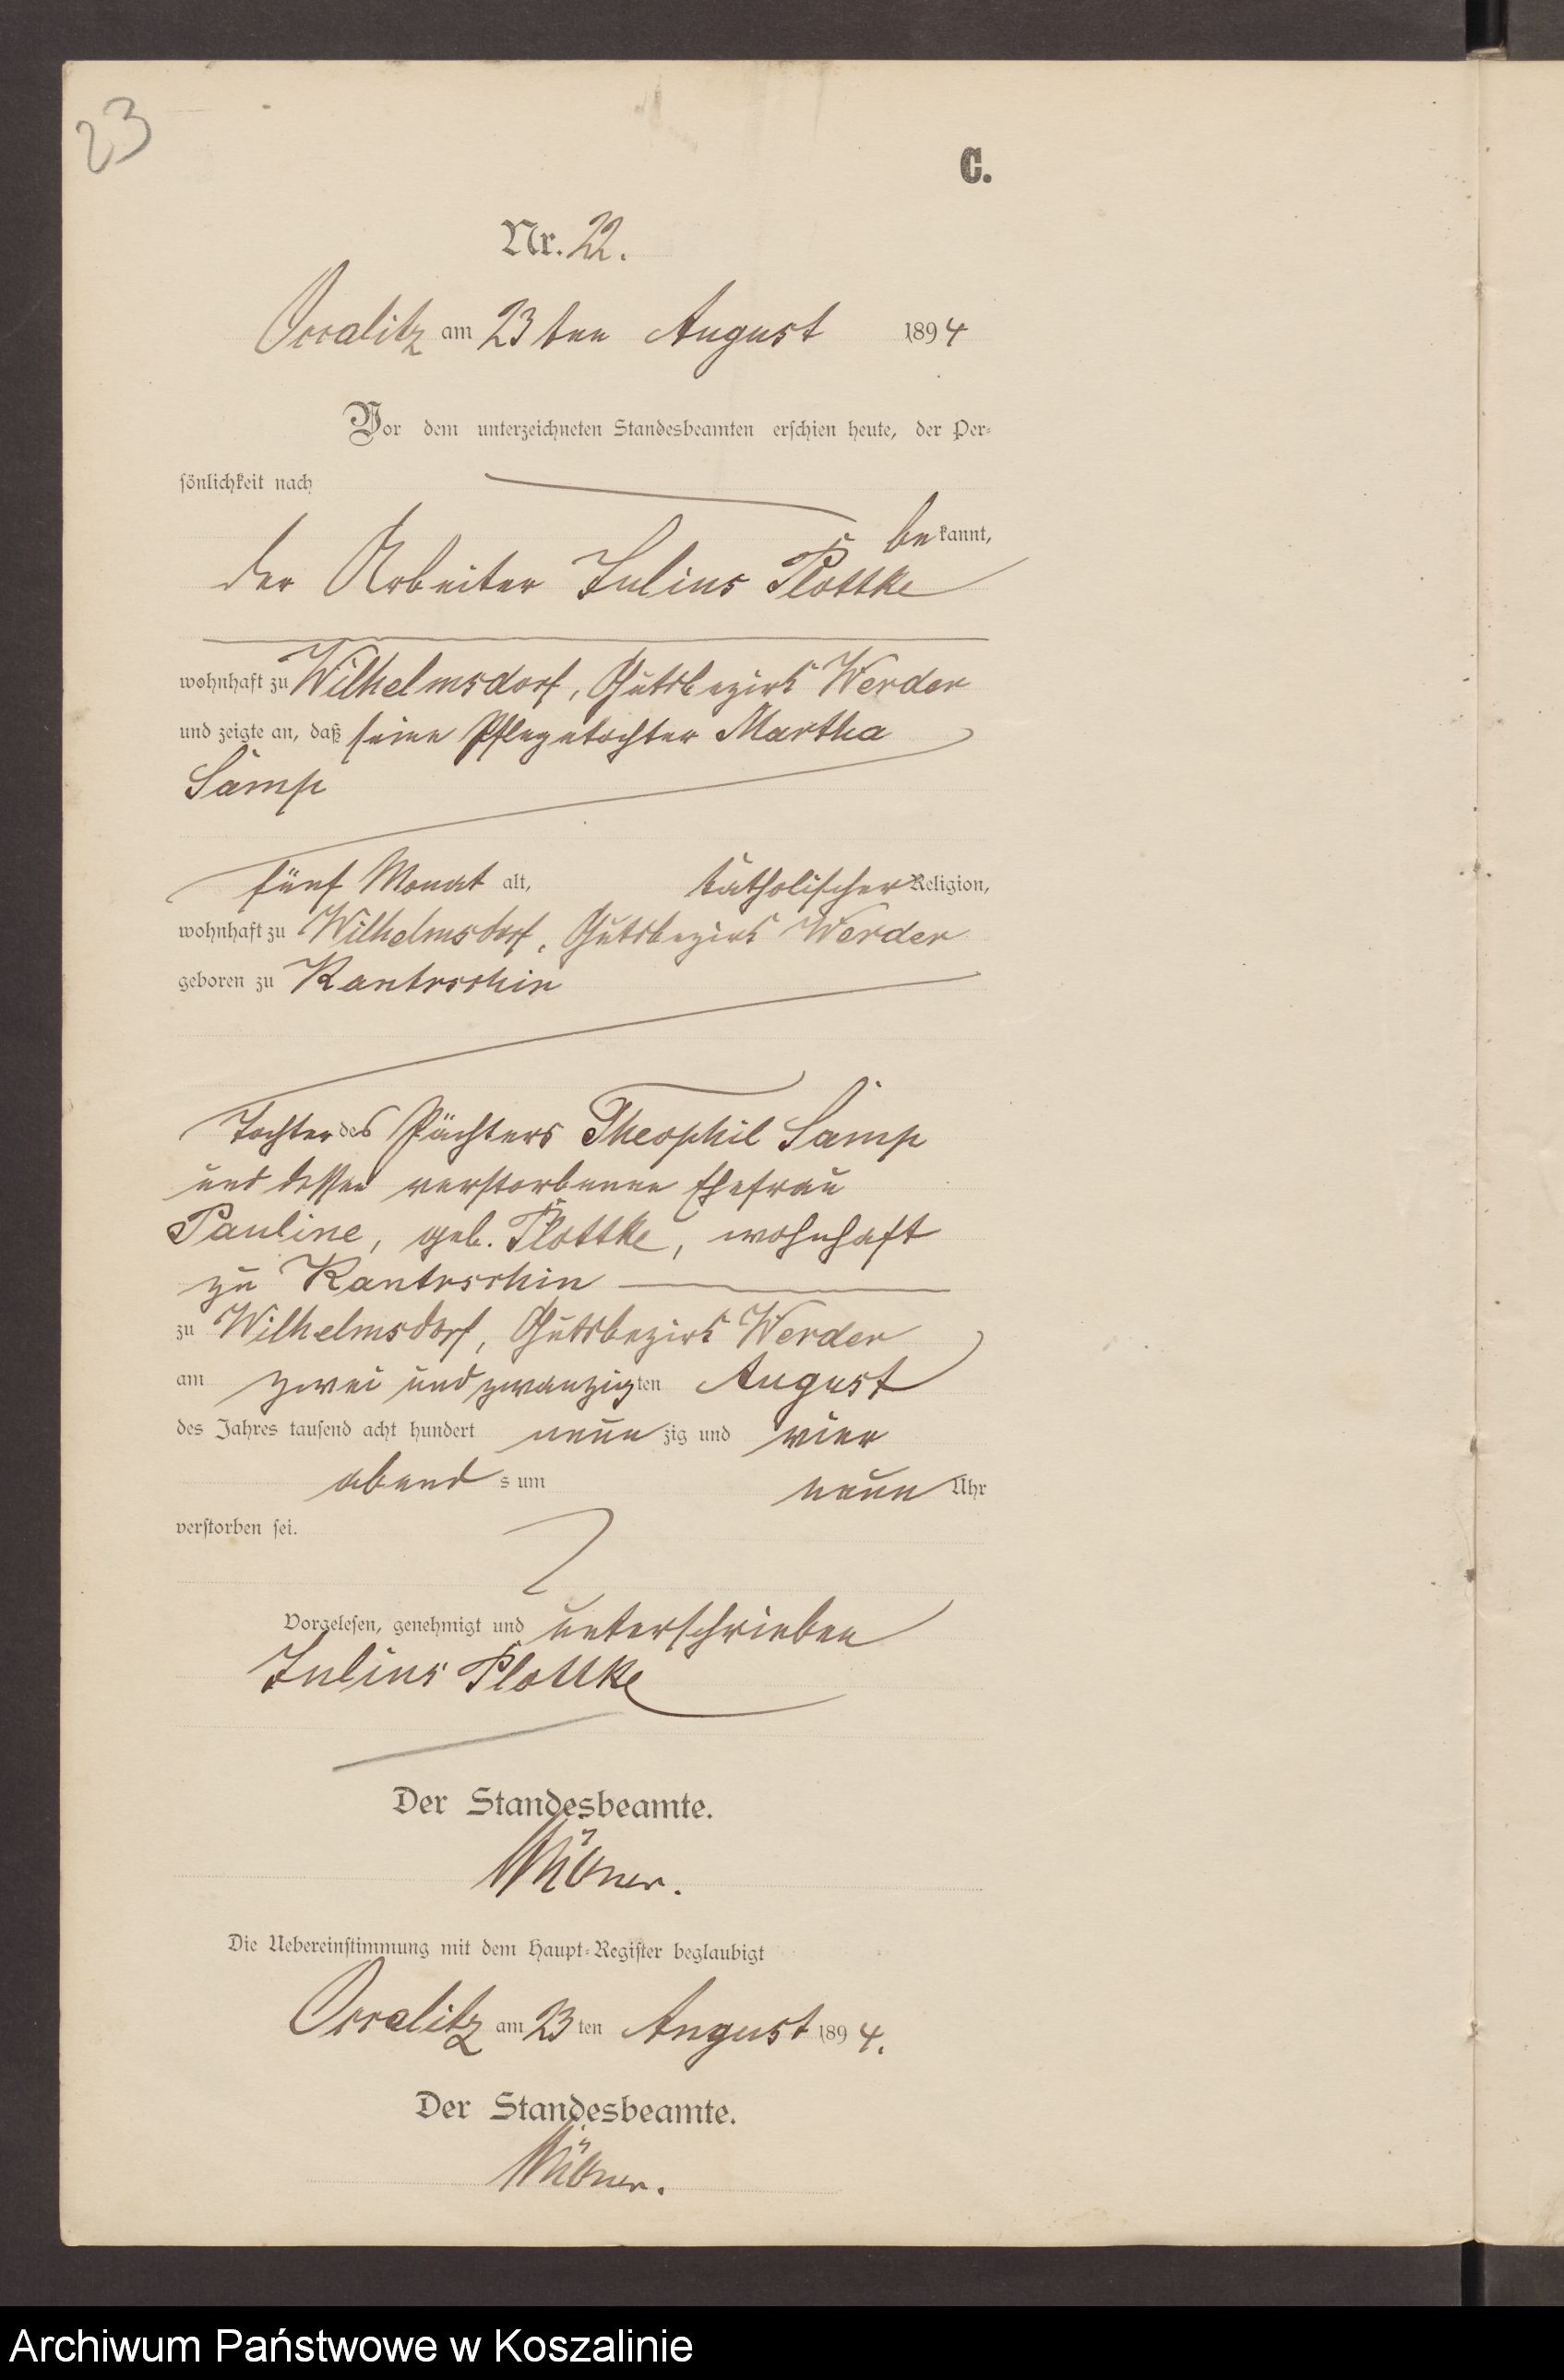 23
C.
Nr. 22.
Occalitz am 23ten August 1894
Vor dem unterzeichneten Standesbeamten erschien heute, der Per-
sönlichkeit nach
bekannt,
der Arbeiter Julius Plottke
wohnhaft zu Wilhelmsdorf, Gutsbezirk Werder
und zeigte an, daß seine Pflegetochter Martha
Samp
fünf Monat alt, katholischer Religion,
wohnhaft zu Wilhelmsdorf, Gutsbezirk Werder
geboren zu Kantrschin
Tochter des Pächters Theophil Samp
und dessen verstorbenen Ehefrau
Pauline, geb. Plottke, wohnhaft
zu Kantrschin
zu Wilhelmsdorf, Gutsbezirk Werder
am zwei und zwanzigsten August
des Jahres tausend acht hundert neunzig und vier
abends um neun Uhr
verstorben sei.
Vorgelesen, genehmigt und unterschrieben
Julius Plottke
Der Standesbeamte.
Die Uebereinstimmung mit dem Haupt-Register beglaubigt
Occalitz am 23ten August 1894.
Der Standesbeamte.
Archiwum Państwowe w Koszalinie